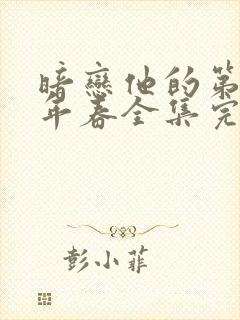 暗戀他的第
年春全集完
彭小菲